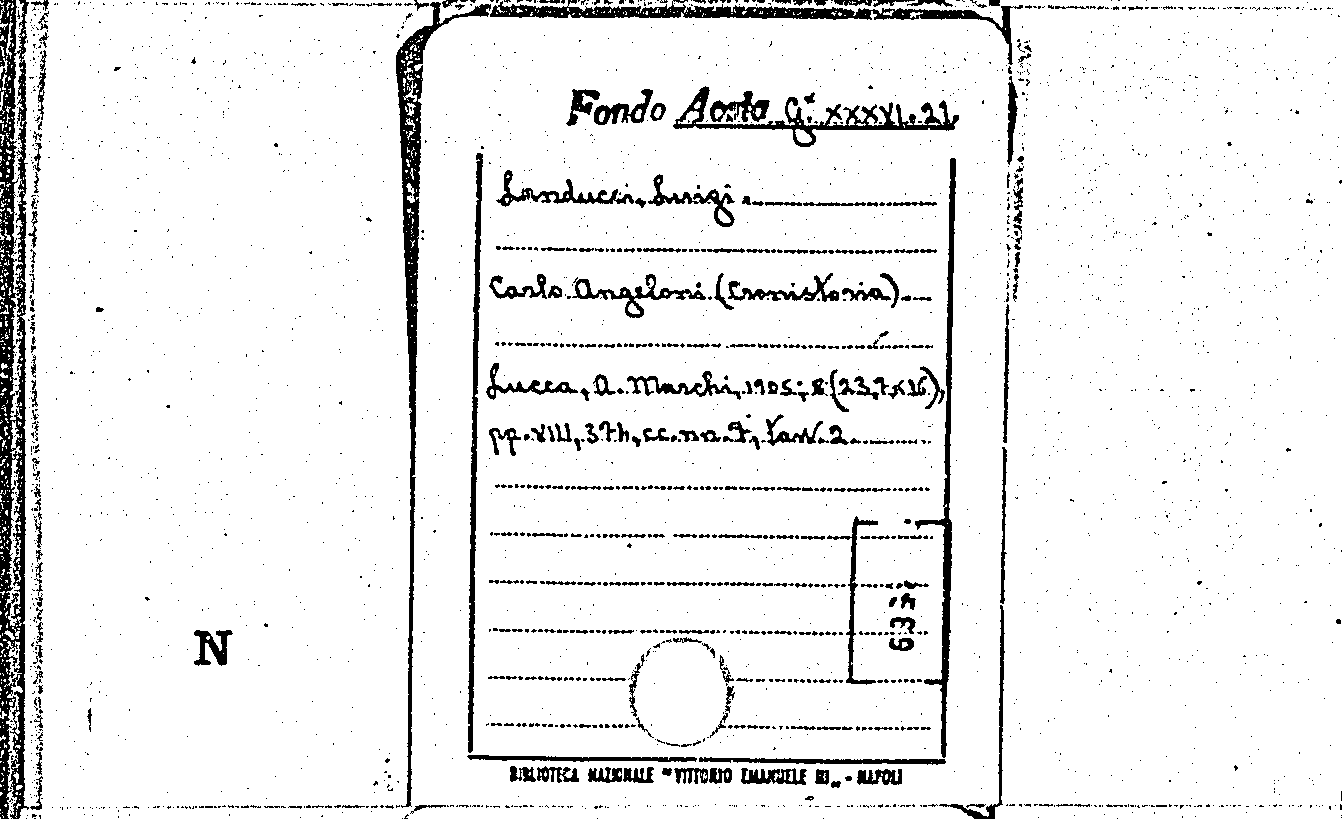 Fondo Aosta G.* XXXVI.21.
Landucci, Luigi.
Carlo Angeloni (Cronistoria).
Lucca, A. Marchi, 1905; 8 (23,7x16),
pp. VIII, 374, cc. nn. 7, tav. 2.
N
BIBLIOTECA NAZIONALE "VITTORIO EMANUELE III„ - NAPOLI